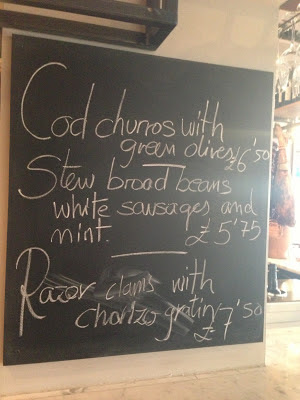 Cod churros with
green olives £6'50
Stew broad beans
white sausages and
mint. £5'75
Razor clams with
chorizo gratin £7'50